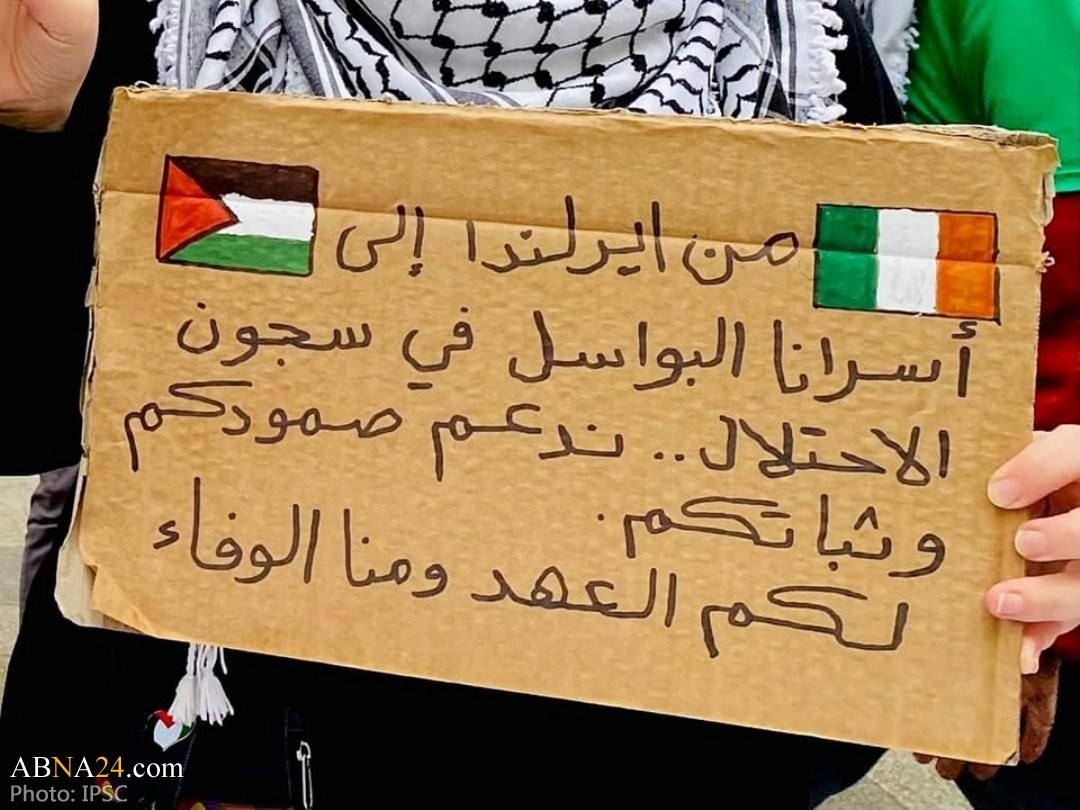 من ايرلندا إلى
أسرانا البواسل في سجون
الاحتلال.. ندعم صمودكم
وثباتكم.
لكم العهد ومنا الوفاء
ABNA24.com
Photo: IPSC